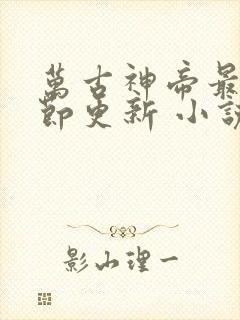 萬古神帝最
節更新 小說
影山理一